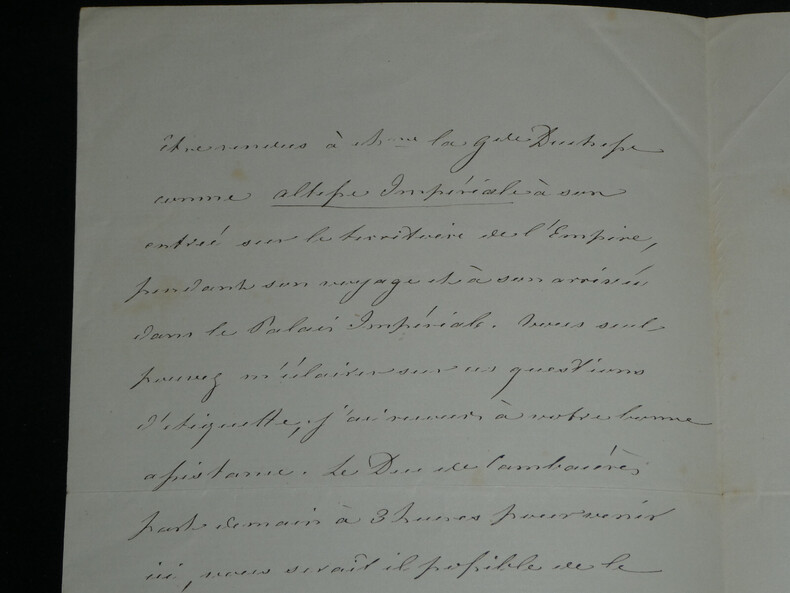 être rendus à Mme la gde Duchesse
comme altesse Impériale à son
entrée sur le territoire de l'Empire,
pendant son voyage et à son arrivée
dans le Palais Impériale. Vous seul
pouvez m'éclairer sur ces questions
d'étiquette, j'ai recours à votre bonne
assistance. Le Duc de Cambacérès
part demain à 3 heures pour venir
ici, vous serait il possible de le